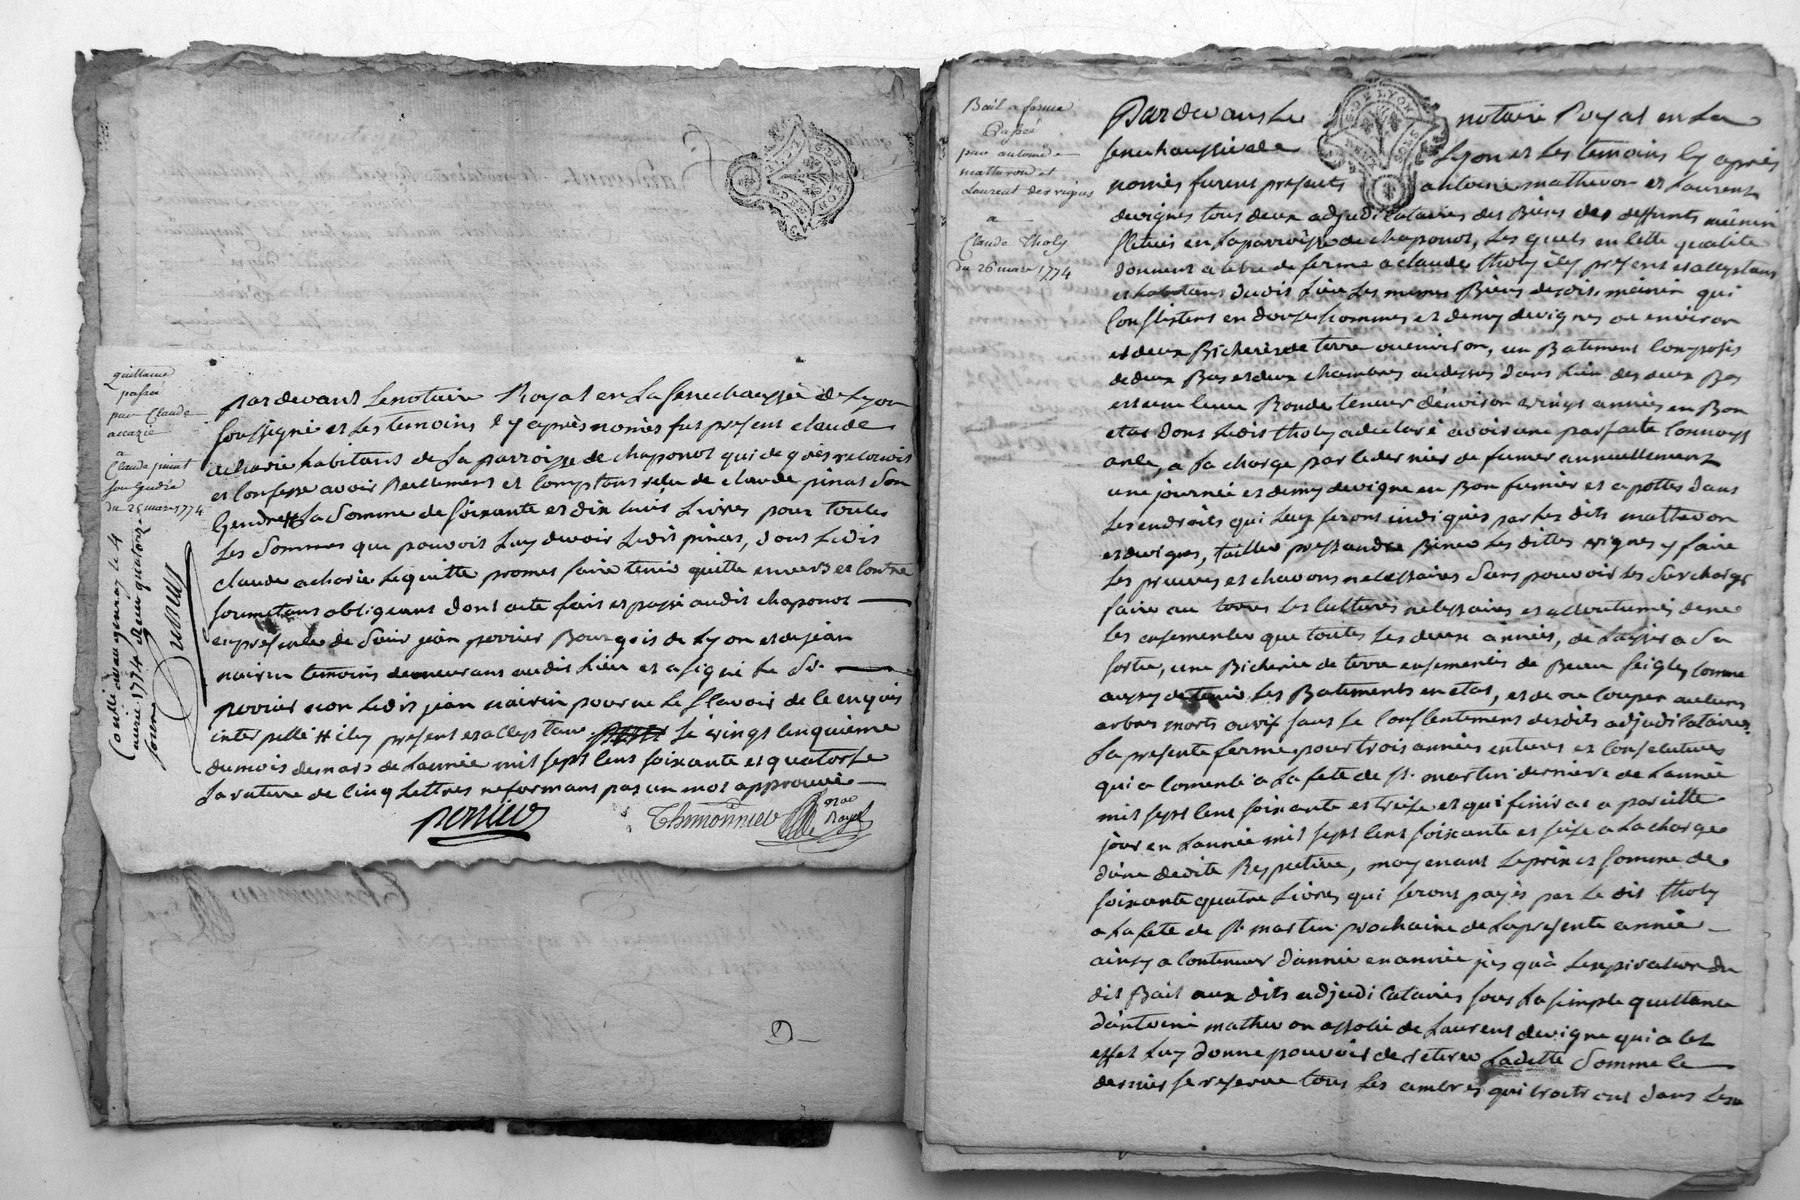 quittance
passée
par Claude
accarie
a
Claude pinat
son Gendre
du 25 mars 1774
Controllé
1774
Pardevant Lenotaire Royal en La senechaussée de Lyon
soussigné et Les temoins cy après només fut present claude
acharie habitant de La parroisse de chaponot qui de gré
et confesse avoir Reellement et comptant de claude pinat son
Gendre # La somme de soixante et dix huit Livres pour toutes
Les sommes que pouvoit Luy devoir Ledit pinat, dont Ledit
claude acharie Lequitte promet faire tenir quitte envers et contre
soumettant obligeant dont acte fait et passé audit chaponot
en presence de sieur jean perrier Bourgeois de Lyon et de jean
nairin temoins demeurans audit Lieu et a signé Le Sr.
perrier non Ledit jean nairin pour ne Le sçavoir de ce enquis
interpellé # icy present et acceptant Le vingt cinquième
du mois de mars de L'année mil sept cent soixante et quatorze
La rature de cinq Lettres ne formant pas un mot approuvée
perrier
Thimonnier
Royal
Bail a ferme
passé
par antoine
mattevon et
Laurent des vignes
a
Claude Tholy
du 26 mars 1774
DE LYON
Pardevant Le notaire Royal en La
senechaussée de Lyon et Les temoins cy après
només furent presents antoine mathevon et Laurent
devignes tous deux adjudicataires des Biens des deffunts
situés en La parroisse de chaponot, Les quels en cette qualité
donnent a titre de ferme a claude tholy icy present et acceptant
et habitant dudit Lieu Les memes Biens desdits qui
consistent en douze hommes et demy de vignes ou environ
et deux Bicherées de terre ou environ, un Batiment composé
de deux Bas et deux chambres au dessus dans L'un des deux Bas
est une cuve Ronde teneur d'environ vingt années en Bon
etat dont Ledit tholy a declaré avoir une parfaite connoyss
ance, a La charge par ce dernier de fumer annuellement
une journée et demy de vigne en Bon fumier et a pottes dans
Les endroits qui Leux seront indiqués par Les dits matthevon
et devignes, tailler Biner Les dittes vignes y faire
Les preuves et chavons necessaires sans pouvoir Les surcharger
faire au terres Les cultures necessaires et accoutumés de ne
Les ensemencer que toutes Les deux années, de Laisser a sa
sortie, une Bicherée de terre ensemencée de Beau seigle, comme
aussy de tenir Les Batiments en etat, et de ne couper aucuns
arbres morts ou vif sans Le conssentement desdits adjudicataires.
La presente ferme pour trois années entieres et consecutives
qui a comencé a La fete de St. martin derniere de L'année
mil sept cent soixante et treize et qui finira a pareille
jour en L'année mil sept cent soixante et seize a La charge
d'une dedite Respective, moyenant Le prix et somme de
soixante quatre Livres qui seront payés par Le dit tholy
a La fete de St. martin prochaine de La presente année
ainsy a continuer d'année en année jusqu'à L'expiration du
dit Bail aux dits adjudicataires sous La simple quittance
d'antoine mathevon associé de Laurent devigne qui a cet
effet Luy donne pouvoir de retirer Laditte somme ce
dernier se reserve tous Les qui croitront dans Les